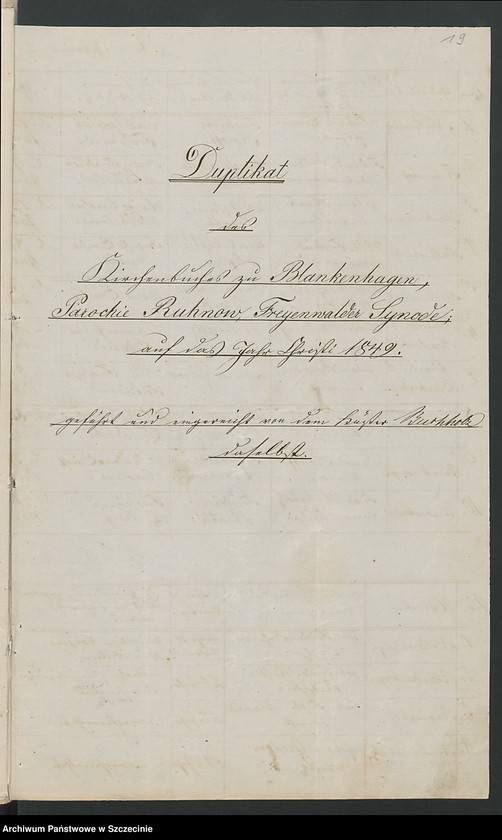 19
Duplikat
des
Kirchenbuches zu Blankenhagen,
Parochie Ruhnow, Freyenwalder Synode;
auf das Jahr Christi 1849.
geführt und eingereicht von dem Küster Buchholz
daselbst.
Archiwum Państwowe w Szczecinie